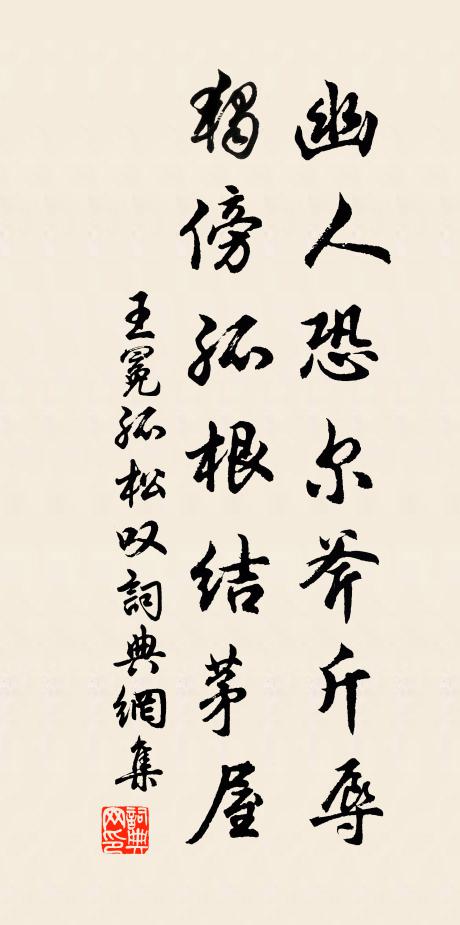 幽人恐尔斧斤辱
獨傍孤根结茅屋
王冕孤松叹詞典網集
詞典
网印